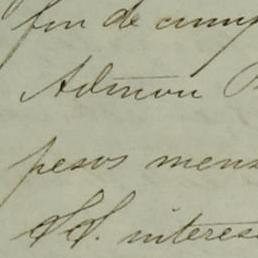 fin de cump
Admon
pesos mens
SS. interes